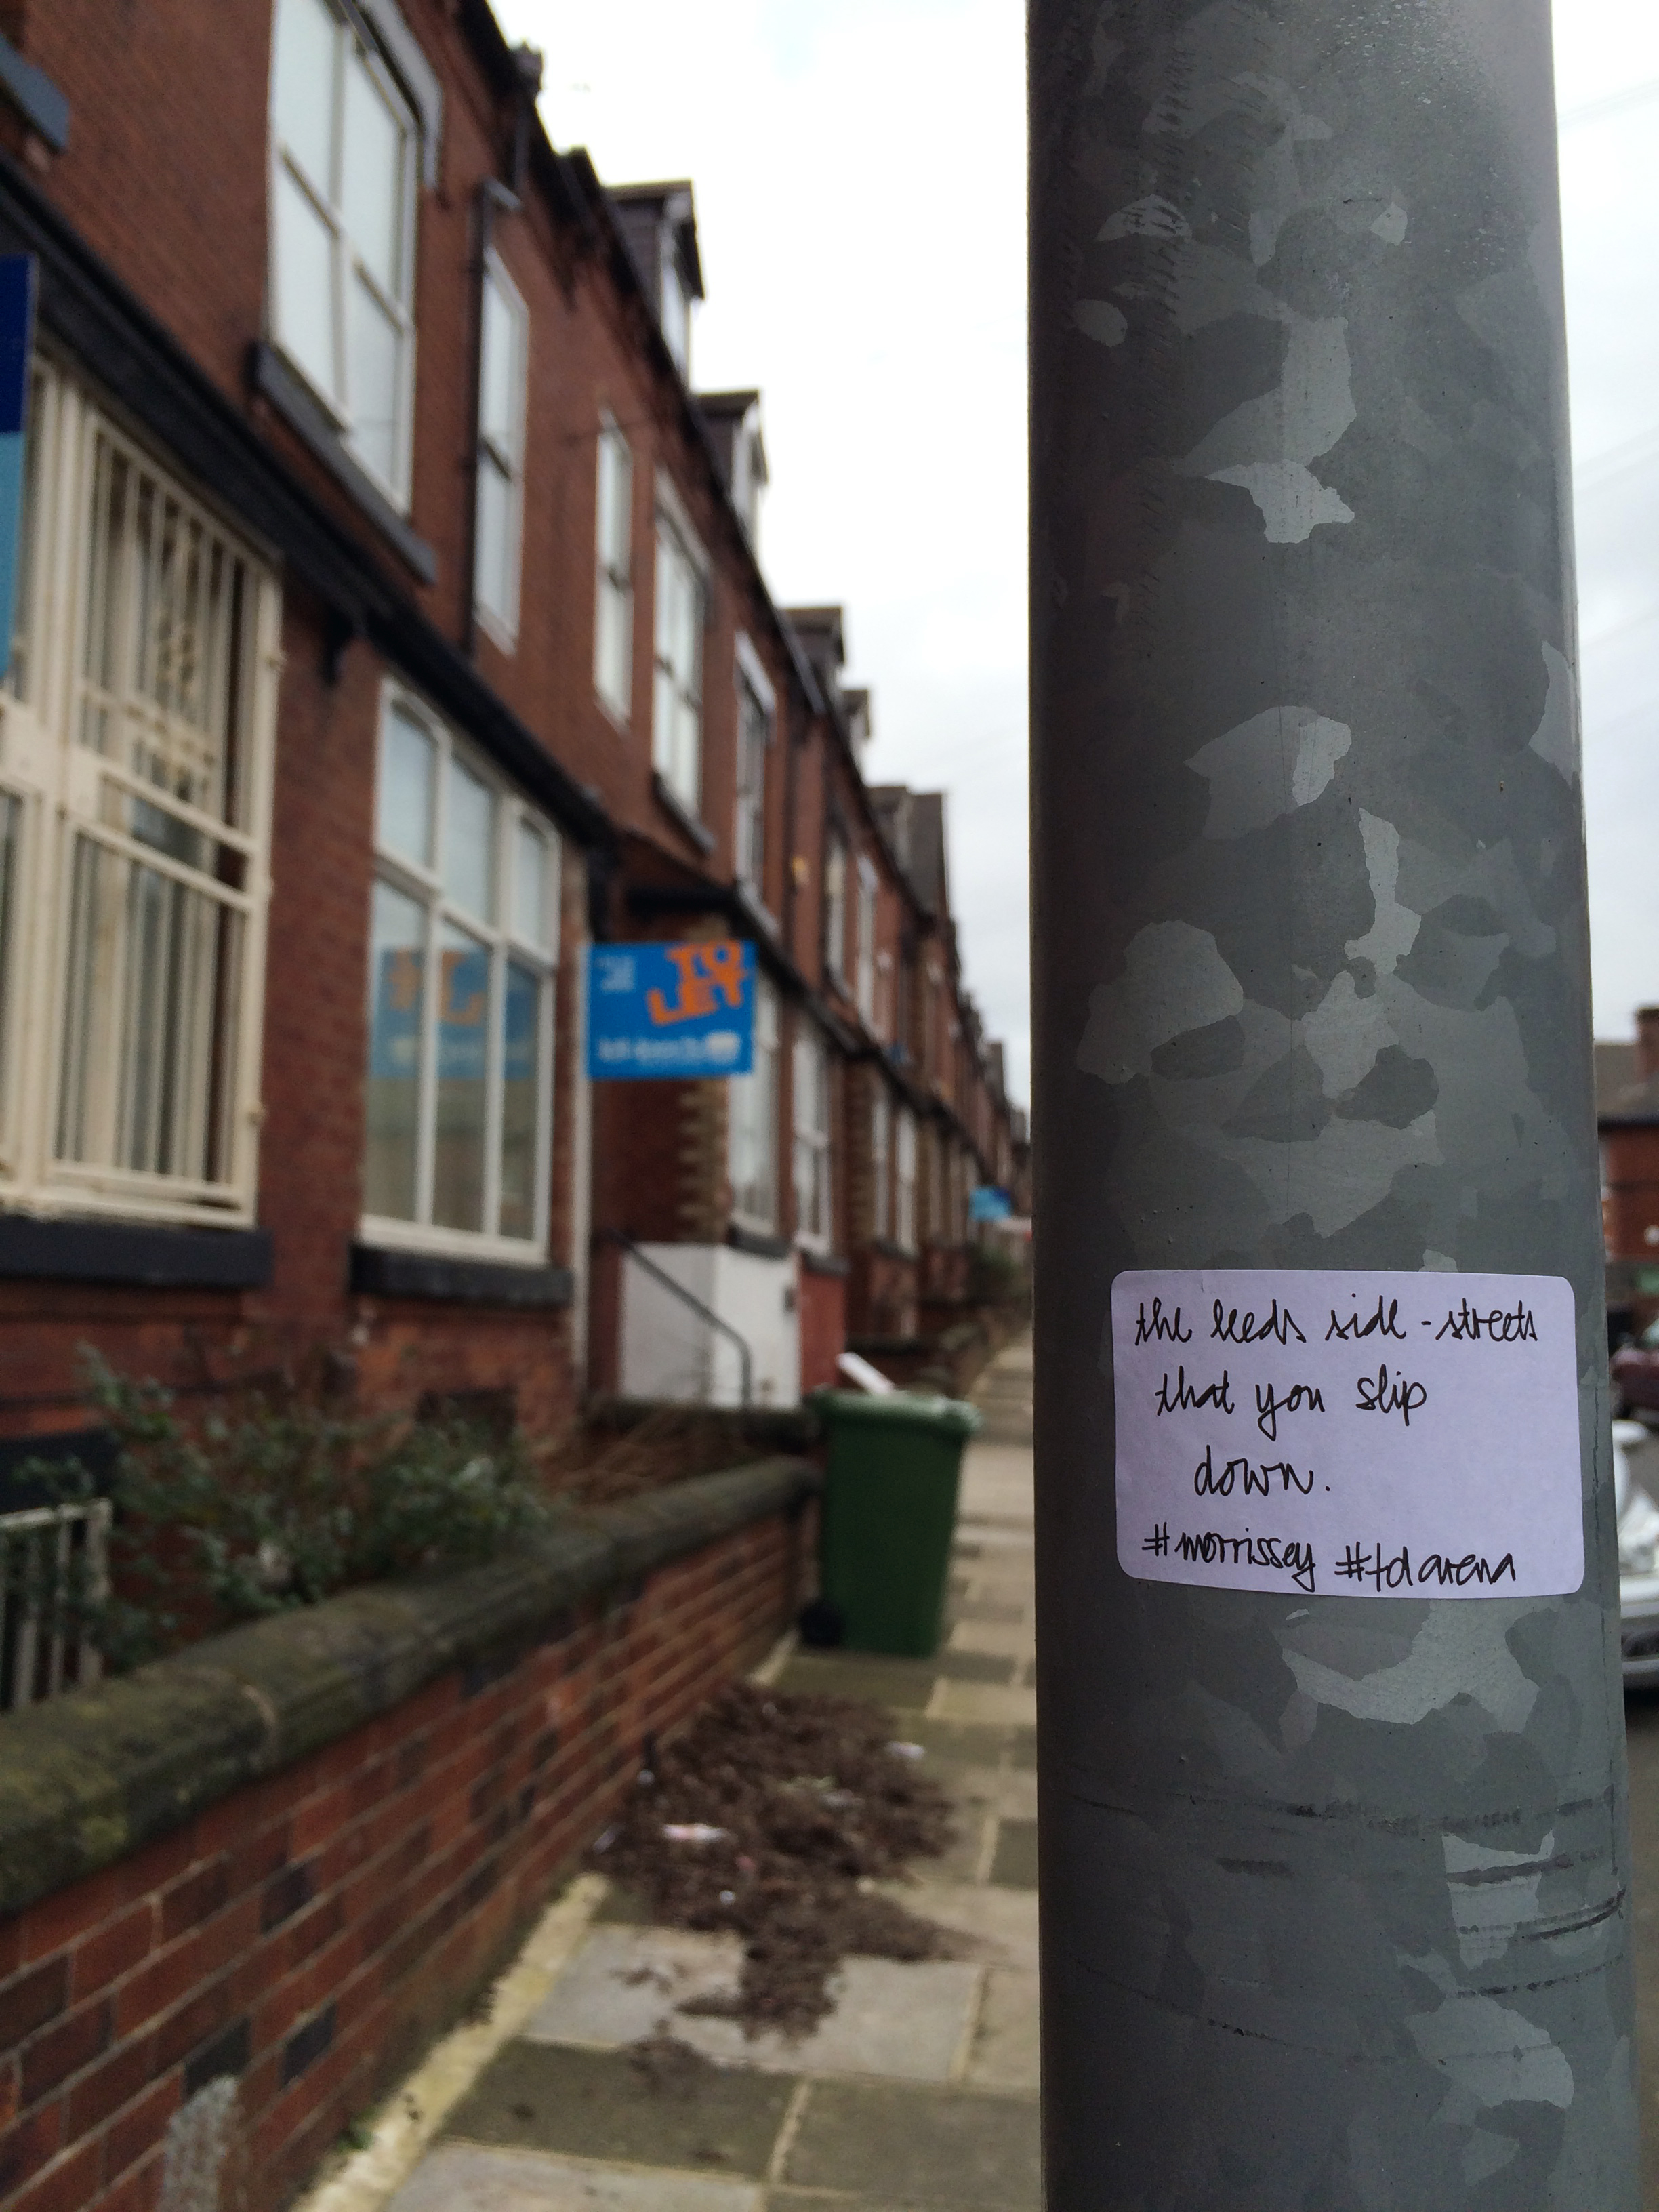 TO
LET
the leeds side-streets
that you slip
down.
#morrissey #fdarena